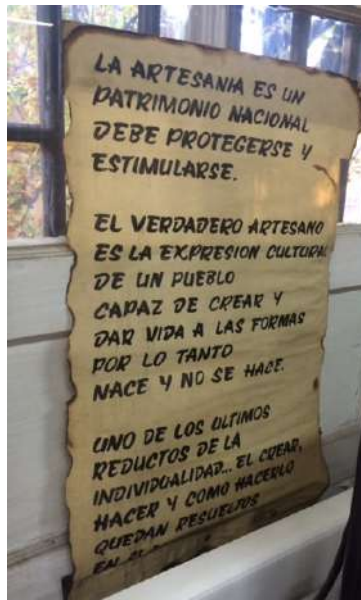 LA ARTESANIA ES UN
PATRIMONIO NACIONAL
DEBE PROTEGERSE Y
ESTIMULARSE.
EL VERDADERO ARTESANO
ES LA EXPRESION CULTURAL
DE UN PUEBLO
CAPAZ DE CREAR Y
DAR VIDA A LAS FORMAS
POR LO TANTO
NACE Y NO SE HACE.
UNO DE LOS ULTIMOS
REDUCTOS DE LA
INDIVIDUALIDAD... EL CREAR,
HACER Y COMO HACERLO
QUEDAN RESUELTOS
EN